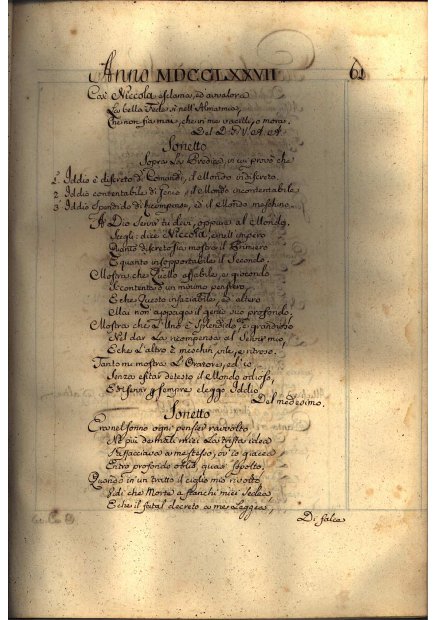 Anno MDCCLXXVII
Così Niccola esclama, ed avvalora
La bella Fede sì nell'Alma mia,
Che non fia mai, che in me vacilli, o mora.
Del D. F. V. A. A.
Sonetto
Sopra La Predica, in cui provò che
1° Iddio è discreto di Comandi, il Mondo indiscreto.
2° Iddio contentabile di Genio, il Mondo incontentabile
3° Iddio Splendido di Ricompensa, ed il Mondo meschino.
A Dio Servir tu devi, oppure al Mondo.
Scegli: dice Niccola, e nell'impero
Quanto discreto sia mostra il Primiero
E quanto insopportabile il Secondo.
Mostra, che Quello affabile, e giocondo
Si contenta d'un minimo pensiero,
E che Questo insaziabile, ed altero
Mai non appaga il genio suo profondo.
Mostra che L'Uno è Splendido, e grandioso
Nel dar La ricompensa al Servir mio,
E che L'altro è meschin, vile, e ritroso.
Tanto me mostra L'Oratore, ed io
Senza esitar detesto il Mondo odioso,
E per sempre eleggo Iddio.
Del medesimo.
Sonetto
Era nel sonno ogni pensier ravvolto
Nè più de mali miei La trista idea
Affacciava a me stesso, ov'io giacea
Entro profondo oblio, quasi sepolto.
Quando in un tratto il ciglio mio rivolto
Vidi che Morte a fianchi miei Sedea,
E che il fatal decreto a me Leggea,
Di falce